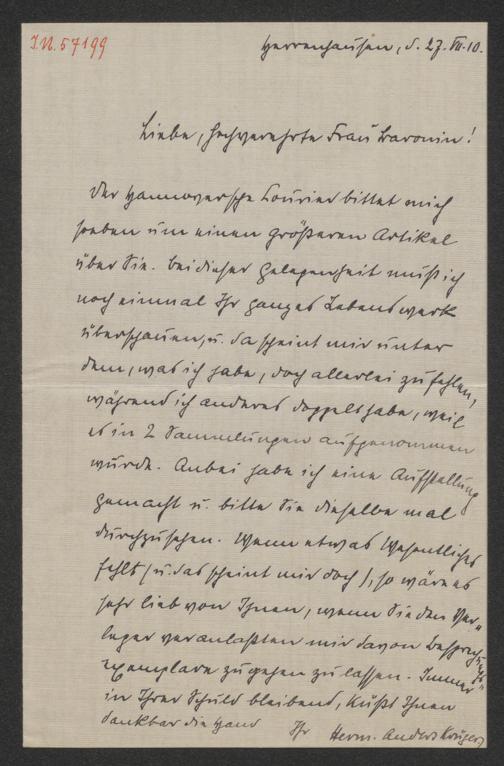 J.N. 57199
Herrenhausen, d. 27. VII. 10.
Liebe, hochverehrte Frau Baronin!
Der Hannoversche Courier bittet mich
soeben um einen größeren Artikel
über Sie. Bei dieser Gelegenheit muß ich
noch einmal Ihr ganzes Lebenswerk
überschauen, u. da scheint mir unter
dem, was ich habe, doch allerlei zu fehlen,
während ich anderes doppelt habe, weil
es in 2 Sammlungen aufgenommen
wurde. Anbei habe ich eine Aufstellung
gemacht u. bitte Sie dieselbe mal
durchzusehen. Wenn etwas Wesentliches
fehlt (u. das scheint mir doch), so wäre es
sehr lieb von Ihnen, wenn Sie den Ver-
leger veranlaßten mir davon Besprechungs-
exemplare zugehen zu lassen. Immer
in Ihrer Schuld bleibend, küßt Ihnen
dankbar die Hand Ihr Herm. Anders Krüger